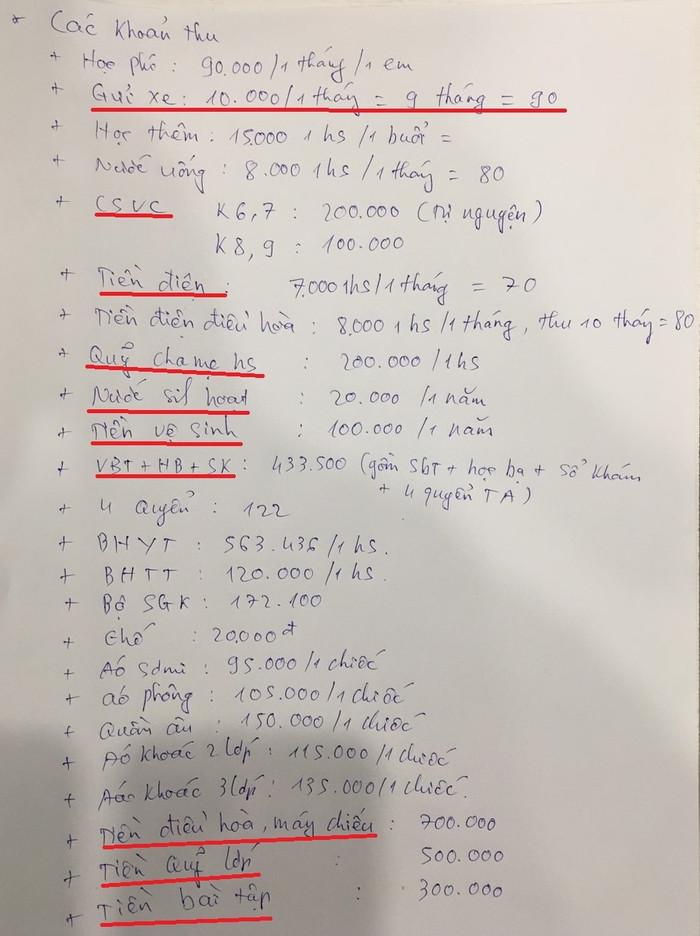 * Các khoản thu
+ Học phí : 90.000/1 tháng/1 em
+ Gửi xe : 10.000/1 tháng = 9 tháng = 90
+ Học thêm : 15.000 1 hs/1 buổi =
+ Nước uống : 8.000 1hs/1 tháng = 80
+ CSVC K6,7 : 200.000 (tự nguyện)
K8,9 : 100.000
+ Tiền điện : 7.000 1hs/1 tháng = 70
+ Tiền điện điều hòa : 8.000 1 hs/1 tháng, thu 10 tháng = 80
+ Quỹ cha mẹ hs : 200.000/1hs
+ Nước sh hoạt : 20.000 /1 năm
+ Tiền vệ sinh : 100.000/1 năm
+ VBT + HB + SK : 433.500 (gồm SBT + học bạ + sổ khám
+ 4 quyển TA)
+ 4 Quyển : 122
+ BHYT : 563.436/1 hs.
+ BHTT : 120.000/1 hs.
+ Bộ SGK : 172.100
+ Ghế : 20.000đ
+ Áo sơmi : 95.000/1 chiếc
+ áo phông : 105.000/1 chiếc
+ Quần âu : 150.000/1 chiếc
+ Áo khoác 2 lớp : 115.000/1 chiếc
+ Áo khoác 3 lớp : 135.000/1 chiếc.
+ Tiền điều hòa, máy chiếu : 700.000
+ Tiền Quỹ lớp : 500.000
+ Tiền bài tập : 300.000